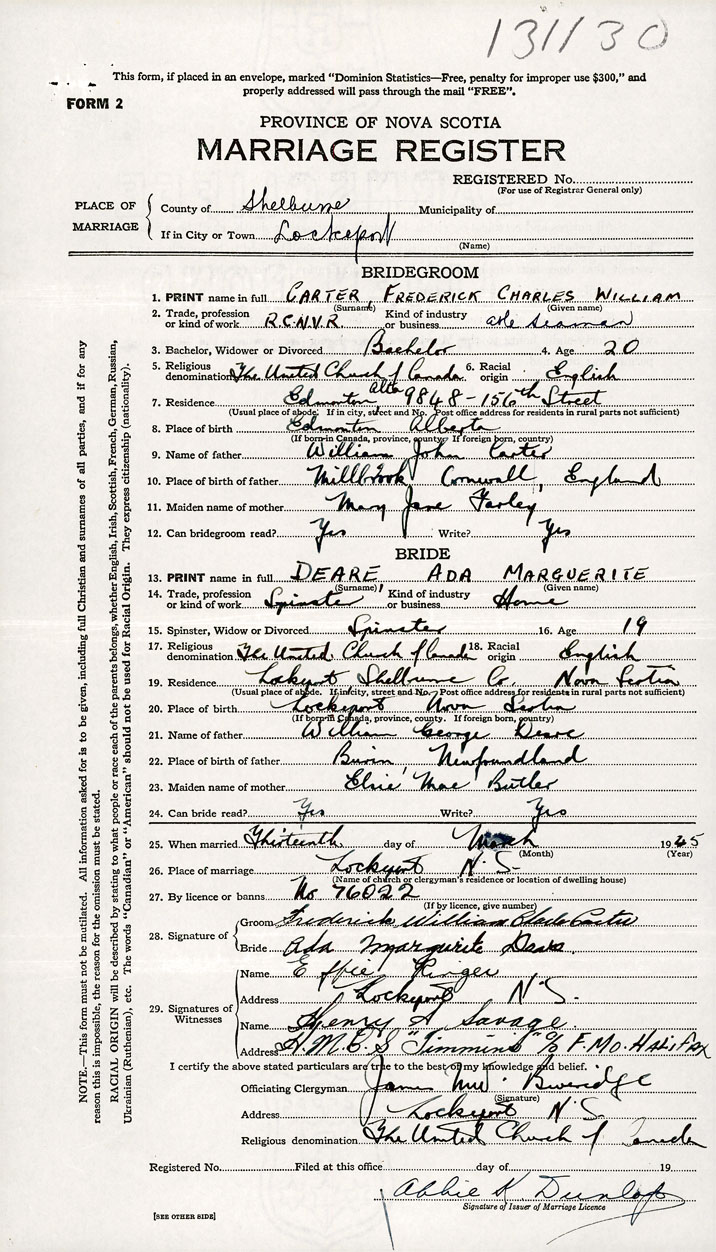 131130
This form, if placed in an envelope, marked "Dominion Statistics—Free, penalty for improper use $300," and
properly addressed will pass through the mail "FREE".
FORM 2
PROVINCE OF NOVA SCOTIA
MARRIAGE REGISTER
REGISTERED No.
(For use of Registrar General only)
PLACE OF MARRIAGE
County of Shelburne Municipality of
If in City or Town Lockeport
(Name)
BRIDEGROOM
1. PRINT name in full CARTER, FREDERICK CHARLES WILLIAM
(Surname) (Given name)
2. Trade, profession or kind of work R.C.N.V.R. Kind of industry or business able seaman
3. Bachelor, Widower or Divorced Bachelor 4. Age 20
5. Religious denomination The United Church of Canada 6. Racial origin English
7. Residence Edmonton alta 9848-156th Street
(Usual place of abode. If in city, street and No. Post office address for residents in rural parts not sufficient)
8. Place of birth Edmonton Alberta
(If born in Canada, province, county. If foreign born, country)
9. Name of father William John Carter
10. Place of birth of father Millbrook Cornwall, England
11. Maiden name of mother Mary Jane Farley
12. Can bridegroom read? Yes Write? Yes
BRIDE
13. PRINT name in full DEARE, ADA MARGUERITE
(Surname) (Given name)
14. Trade, profession or kind of work Spinster Kind of industry or business Home
15. Spinster, Widow or Divorced Spinster 16. Age 19
17. Religious denomination The United Church of Canada 18. Racial origin English
19. Residence Lockeport Shelburne Co. Nova Scotia
(Usual place of abode. If in city, street and No. Post office address for residents in rural parts not sufficient)
20. Place of birth Lockeport Nova Scotia
(If born in Canada, province, county. If foreign born, country)
21. Name of father William George Deare
22. Place of birth of father Burin, Newfoundland
23. Maiden name of mother Elsie Mae Butler
24. Can bride read? Yes Write? Yes
25. When married Thirteenth day of March 1945
(Month) (Year)
26. Place of marriage Lockeport N.S.
(Name of church or clergyman's residence or location of dwelling house)
27. By licence or banns No 76022
(If by licence, give number)
28. Signature of
Groom Frederick William Carter
Bride Ada Marguerite Deare
29. Signatures of Witnesses
Name Effie Ringer
Address Lockeport N.S.
Name Henry A Savage
Address H.M.C.S "Timmins" c/o F.M.O. HALIFAX
I certify the above stated particulars are true to the best of my knowledge and belief.
Officiating Clergyman James Beveridge
(Signature)
Address Lockeport N.S.
Religious denomination The United Church of Canada
Registered No. Filed at this office day of 19
Abbie K Dunlop
Signature of Issuer of Marriage Licence
[SEE OTHER SIDE]
NOTE.—This form must not be mutilated. All information asked for is to be given, including full Christian and surnames of all parties, and if for any
reason this is impossible, the reason for the omission must be stated.
RACIAL ORIGIN will be described by stating to what people or race each of the parents belongs, whether English, Irish, Scottish, French, German, Russian,
Ukrainian (Ruthenian), etc. The words "Canadian" or "American" should not be used for Racial Origin. They express citizenship (nationality).